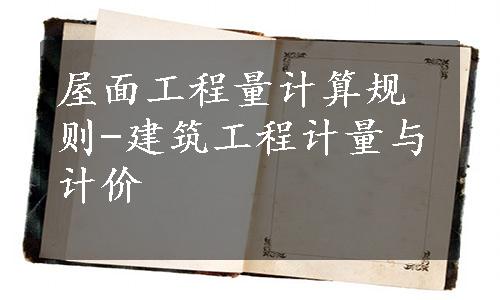 屋面工程量计算规
则-建筑工程计量与
计价